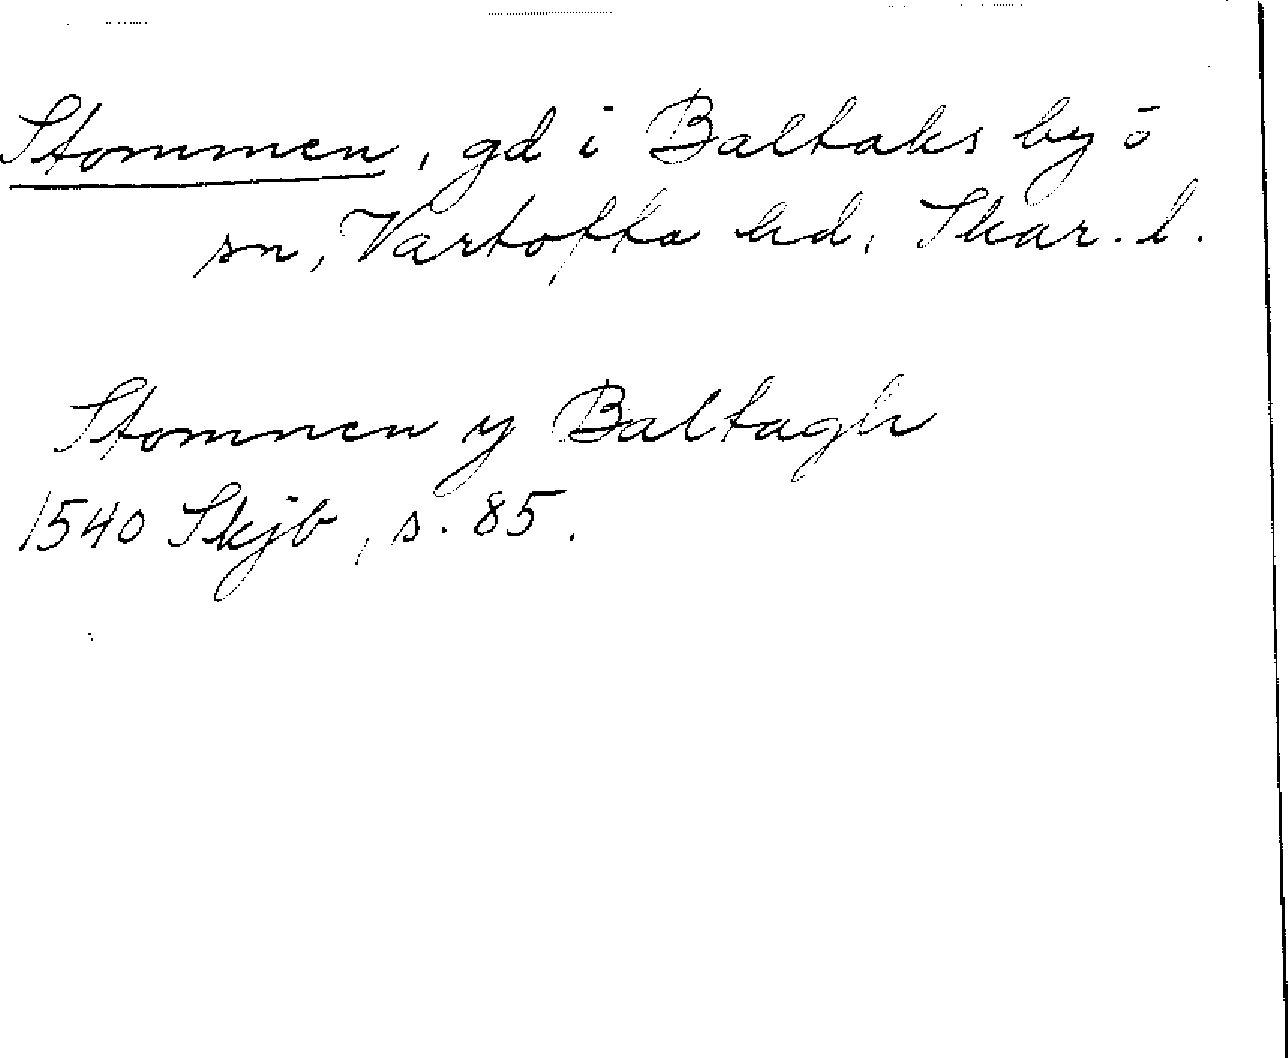 Stommen, gd i Baltaks by o
sn, Vartofta hd, Skar. l.
Stomnen y Baltagh
1540 Skjb, s. 85.